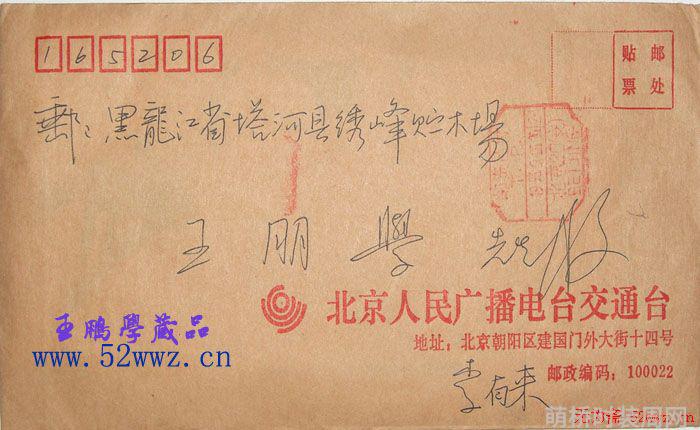 165206
贴 邮
票 处
郵：黑龍江省塔河县绣峰贮木場
王朋學 先生 收
北京人民广播电台交通台
地址：北京朝阳区建国门外大街十四号
李有来
邮政编码：100022
王鵬學藏品
www.52wwz.cn